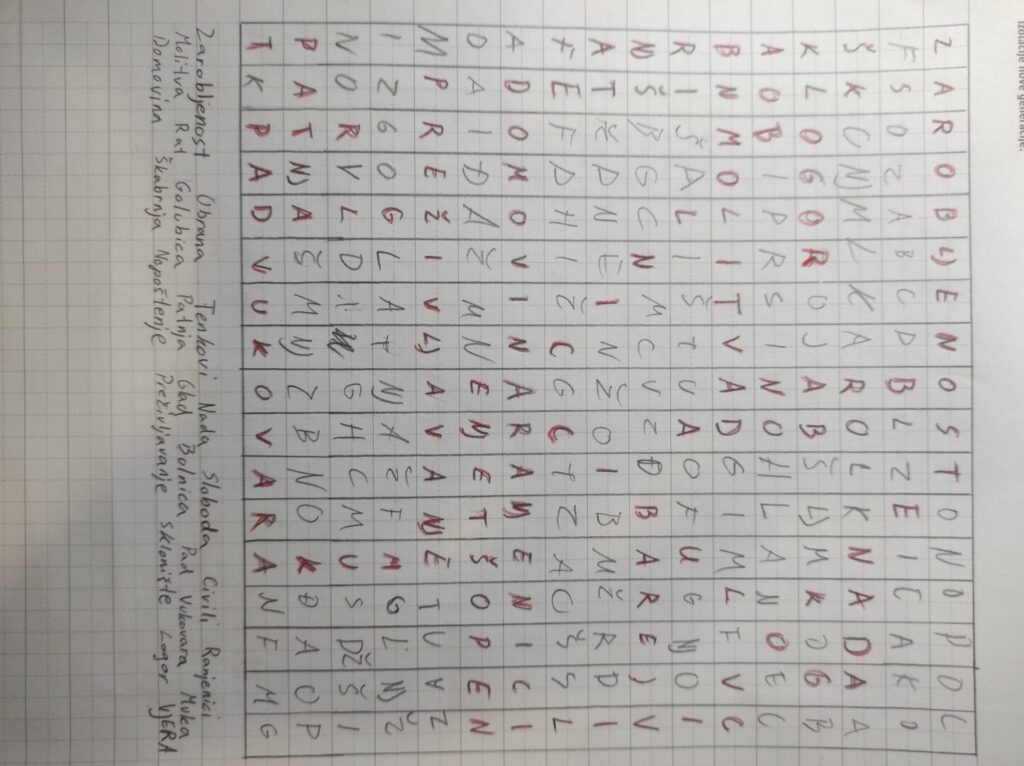 nove generacije.
Z A R O B LJ E N O S T O N O P D C
F S O Z A B C D B L Z E I C A K D
Š K C NJ M L K A R O L K N A D A A
K L O G O R O J A B Š LJ M K D G B
A O B I P R S I N O H L A N O E C
B N M O L I T V A D G I M L F V C
R I Š A L I Š T U A O F U G NJ O I
N Š B G C N M C V Z D B A R E J V
A T Ž D N E I N Ž O I B M Ž R D I
F E F D H I Ž C G C T Z A O Š S L
A D O M O V I N A R A NJ E N I C I
O A I D A Ž M N E NJ E T Š O P E N
M P R E Ž I V LJ A V A NJ E T U V Z
I Z G O G L A T NJ A Ž F M G L NJ Ž
N O R V L D G H C M U S DŽ Š I
P A T NJ A Š M NJ Z B N O K Đ A O P
T K P A D V U K O V A R A N F M G
Zarobljenost Obrana Tenkovi Nada Sloboda Civili Ranjenici
Molitva Rat Golubica Patnja Glad Bolnica Pad Vukovara Muka
Domovina Škabrnja Nepoštenje Preživljavanje sklonište Logor VJERA